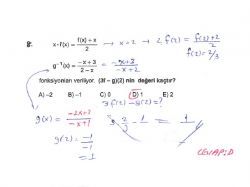 8. x·f(x) = f(x) + x / 2 → x=2 → 2f(2) = f(2)+2 / 2
f(2) = 2/3
g⁻¹(x) = -x + 3 / 2 - x = -x+3 / -x+2
fonksiyonları veriliyor. (3f – g)(2) nin değeri kaçtır?
A) –2 B) –1 C) 0 D) 1 E) 2
3f(2) - g(2) = ?
g(x) = -2x+3 / -x+1
3 · 2/3 - 1 = 1
g(2) = -1 / -1
= 1
CEVAP: D